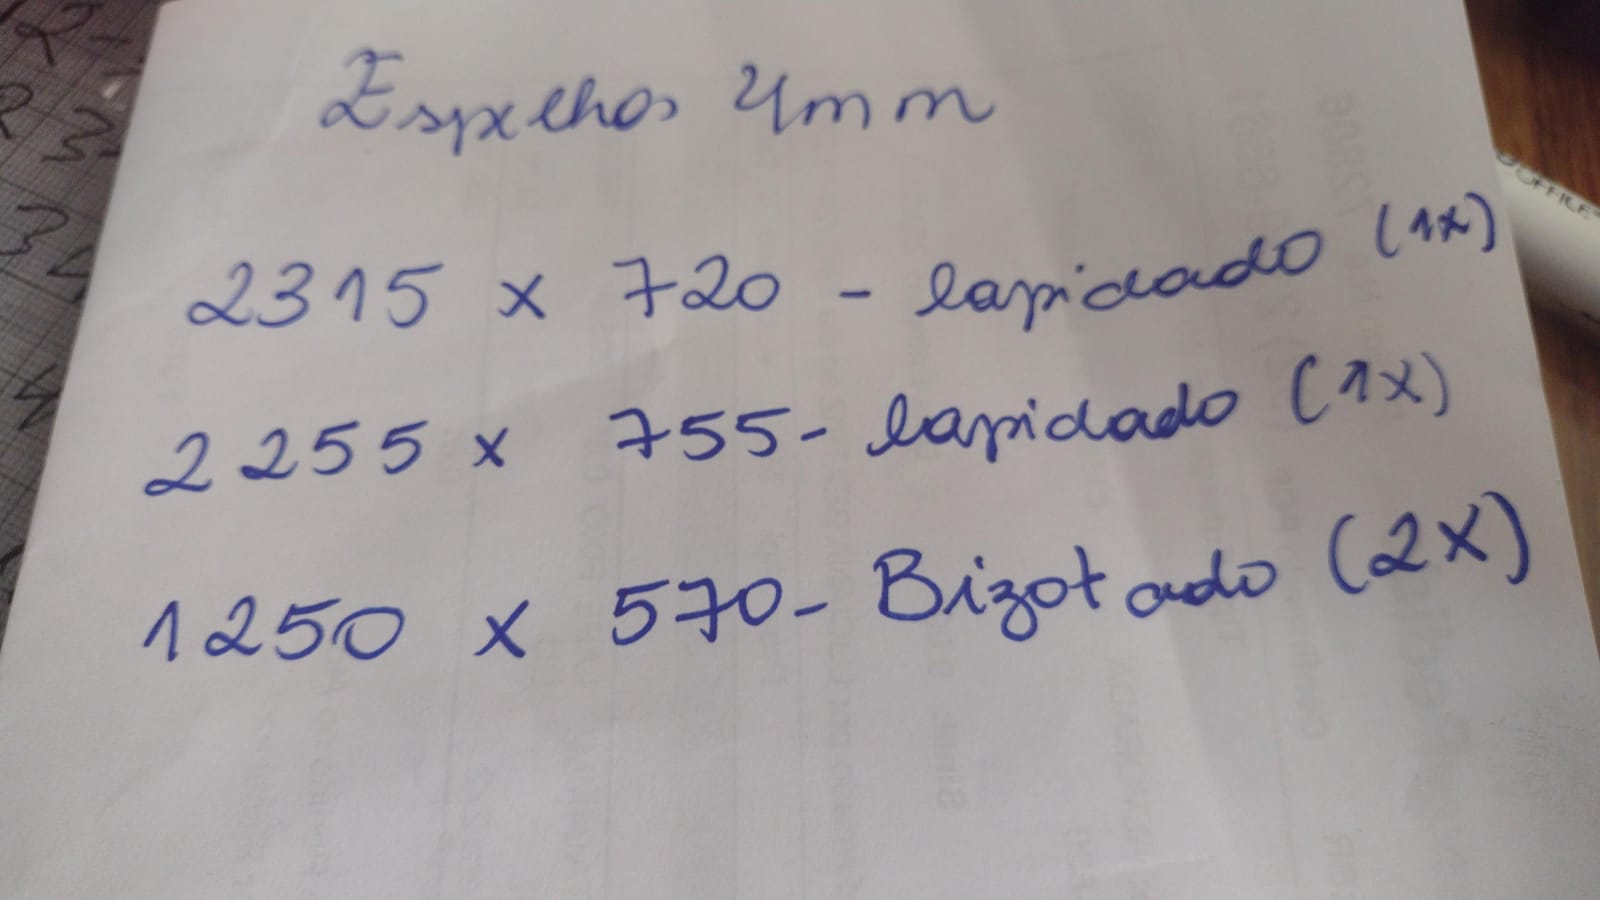 Espelhos 4mm
2315 x 720 - lapidado (1x)
2255 x 755 - lapidado (1x)
1250 x 570 - Bizotado (2x)
OFFICE